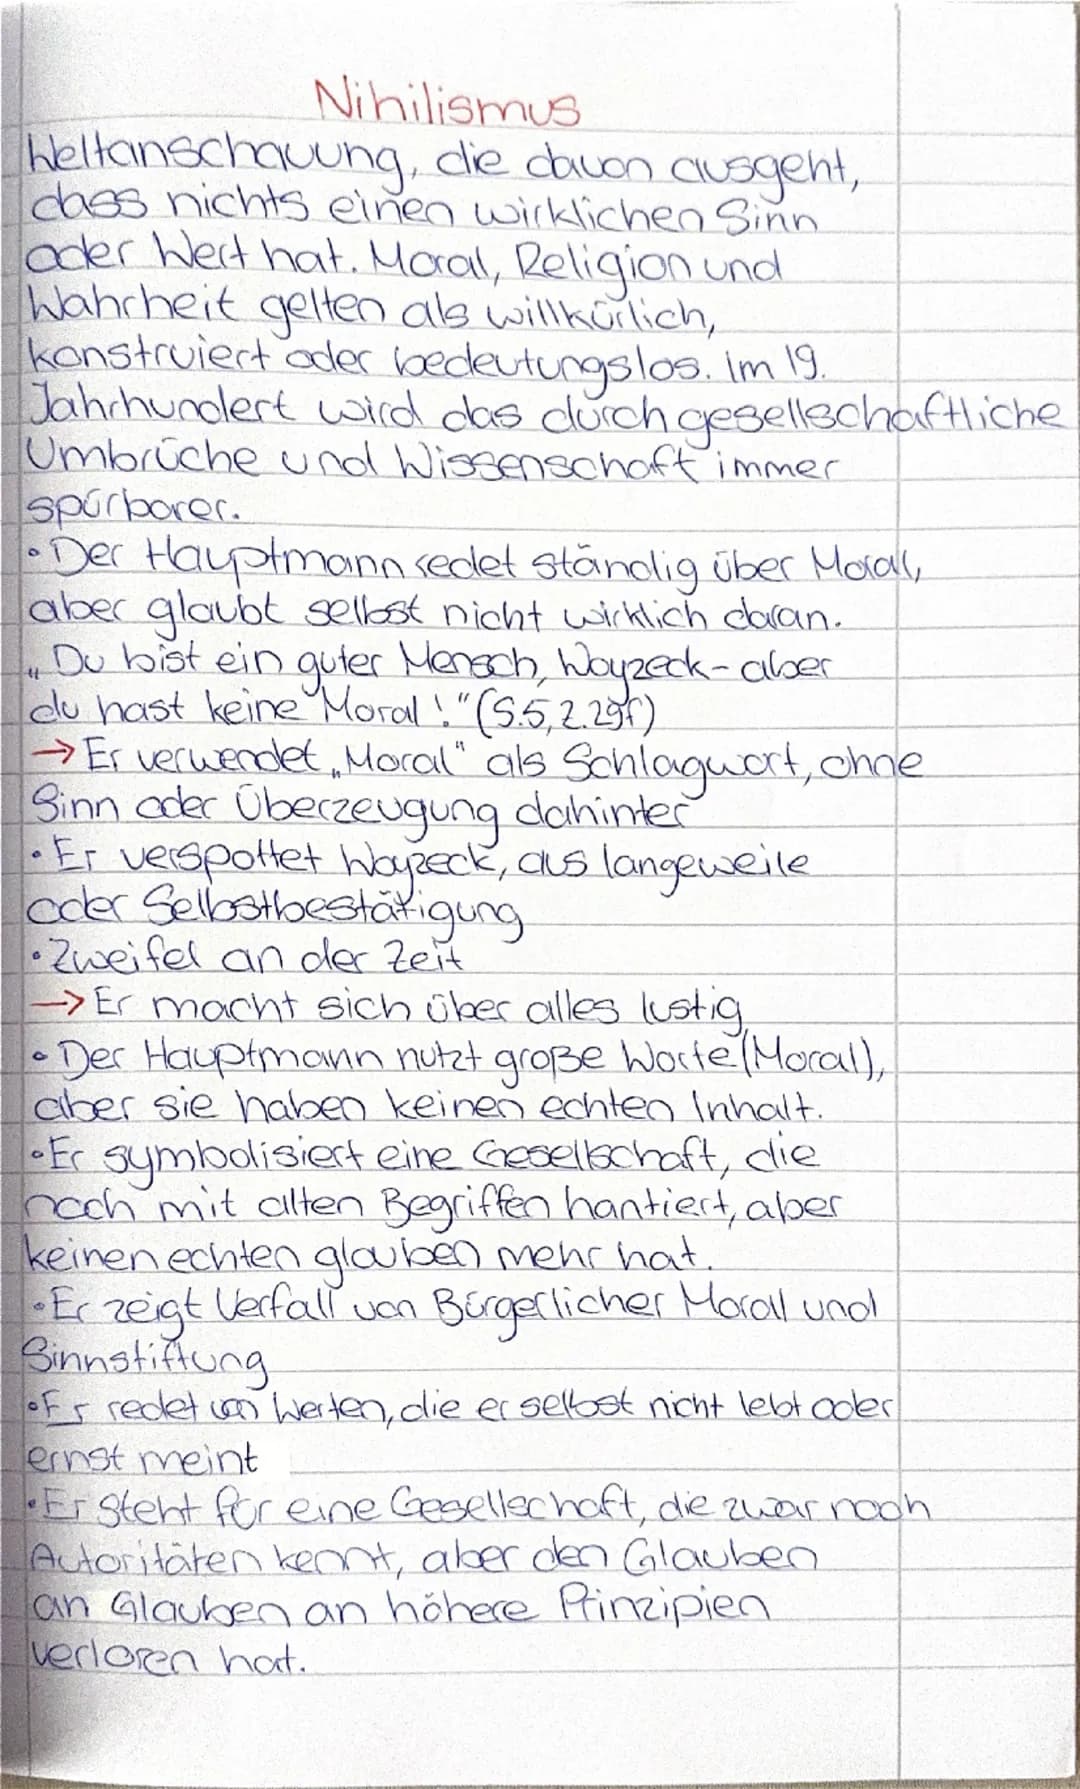 Nihilismus
Weltanschauung, die davon ausgeht,
dass nichts einen wirklichen Sinn
oder Wert hat. Moral, Religion und
Wahrheit gelten als willkürlich,
konstruiert oder bedeutungslos. Im 19.
Jahrhundert wird das durch gesellschaftliche
Umbrüche und Wissenschaft immer
spürbarer.
• Der Hauptmann redet ständig über Moral,
aber glaubt selbst nicht wirklich daran.
„Du bist ein guter Mensch, Woyzeck - aber
du hast keine Moral!" (S.5, Z.29f)
→ Er verwendet „Moral" als Schlagwort, ohne
Sinn oder Überzeugung dahinter
• Er verspottet Woyzeck, aus langeweile
oder Selbstbestätigung
• Zweifel an der Zeit
→ Er macht sich über alles lustig
• Der Hauptmann nutzt große Worte (Moral),
aber sie haben keinen echten Inhalt.
• Er symbolisiert eine Gesellschaft, die
noch mit alten Begriffen hantiert, aber
keinen echten glauben mehr hat.
• Er zeigt Verfall von Bürgerlicher Moral und
Sinnstiftung
• Er redet von Werten, die er selbst nicht lebt oder
ernst meint
• Er steht für eine Gesellschaft, die zwar noch
Autoritäten kennt, aber den Glauben
an Glauben an höhere Prinzipien
verloren hat.